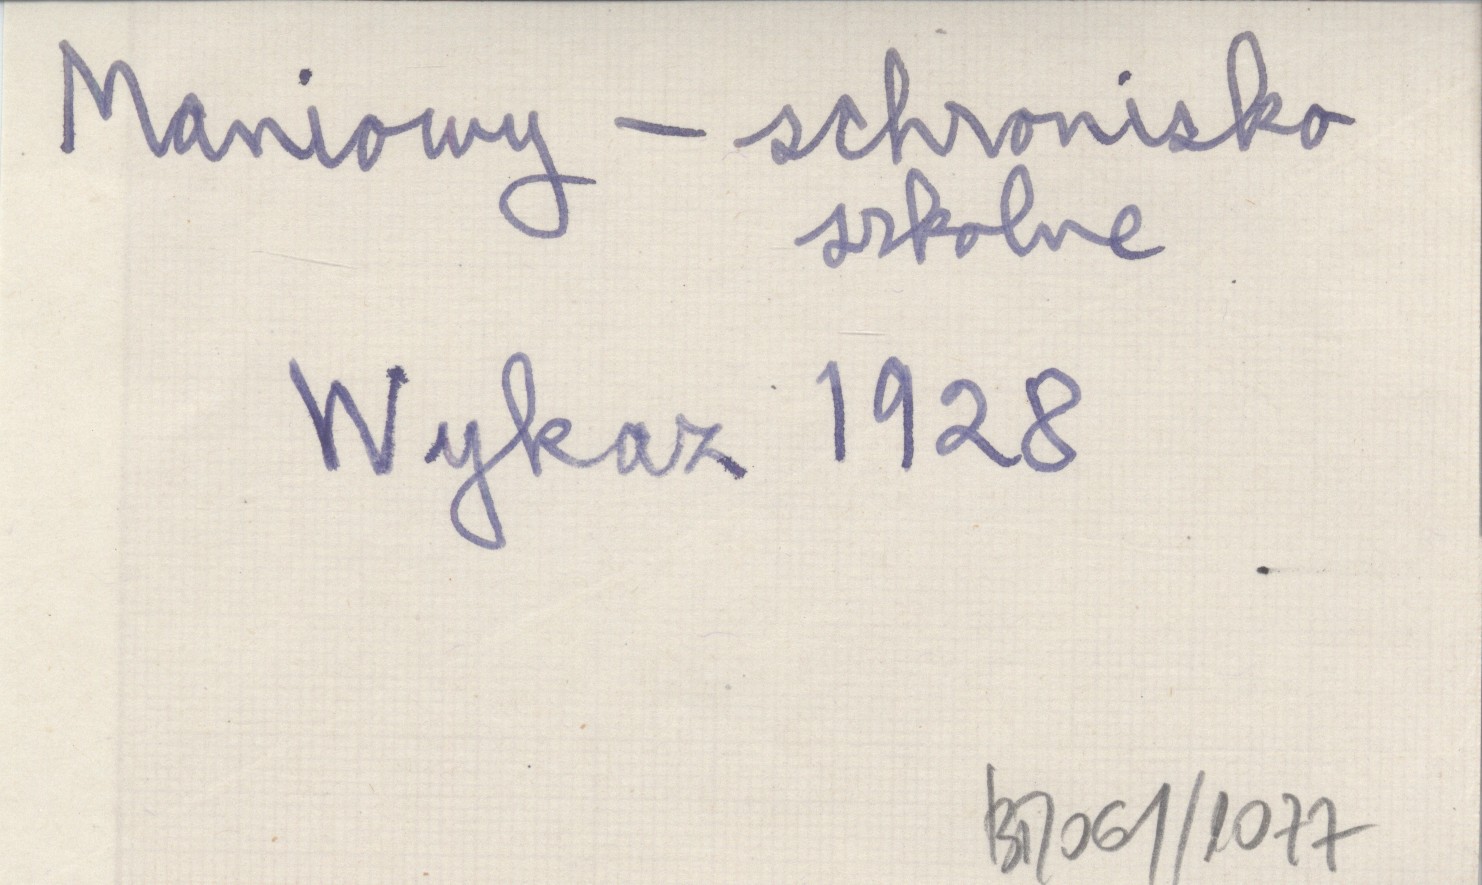 Maniowy - schronisko
szkolne
Wykaz 1928
BN061/1077